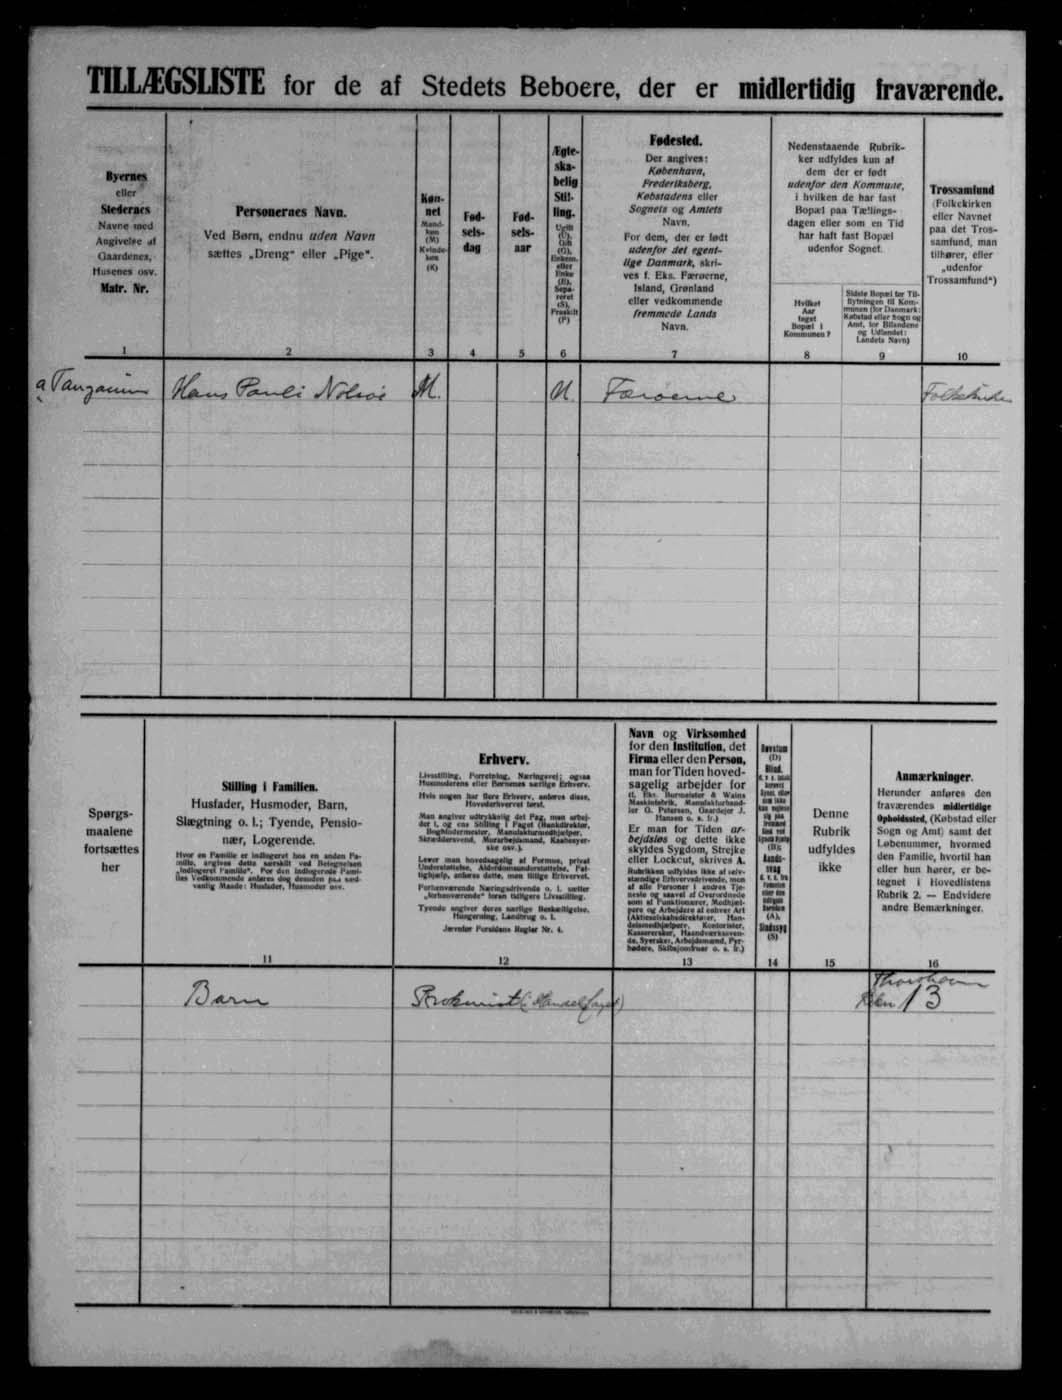 TILLÆGSLISTE for de af Stedets Beboere, der er midlertidig fraværende.
Byernes
eller
Stedernes
Navne med
Angivelse af
Gaardenes,
Husenes osv.
Matr. Nr.
1
Personernes Navn.
Ved Børn, endnu uden Navn
sættes „Dreng“ eller „Pige“.
2
Køn-
net
Mand-
køn
(M)
Kvinde-
køn
(K)
3
Fød-
sels-
dag
4
Fød-
sels-
aar
5
Ægte-
ska-
belig
Stil-
ling.
Ugift
(U),
Gift
(G),
Enkem.
eller
Enke
(E),
Sepa-
reret
(S),
Fraskilt
(F)
6
Fødested.
Der angives:
København,
Frederiksberg,
Købstadens eller
Sognets og Amtets
Navn.
For dem, der er født
udenfor det egent-
lige Danmark, skri-
ves f. Eks. Færøerne,
Island, Grønland
eller vedkommende
fremmede Lands
Navn.
7
Nedenstaaende Rubrik-
ker udfyldes kun af
dem der er født
udenfor den Kommune,
i hvilken de har fast
Bopæl paa Tællings-
dagen eller som en Tid
har haft fast Bopæl
udenfor Sognet.
Hvilket
Aar
taget
Bopæl i
Kommunen?
8
Sidste Bopæl før Til-
flytningen til Kom-
munen (for Danmark:
Købstad eller Sogn og
Amt, for Bilandene
og Udlandet:
Landets Navn)
9
Trossamfund
(Folkekirken
eller Navnet
paa det Tros-
samfund, man
tilhører, eller
„udenfor
Trossamfund“)
10
Hans Pauli Nolsøe M. U. Færøerne Folkekirken
Spørgs-
maalene
fortsættes
her
Stilling i Familien.
Husfader, Husmoder, Barn,
Slægtning o. l.; Tyende, Pensio-
nær, Logerende.
Hvor en Familie er indlogeret hos en anden Fa-
milie, angives dette særskilt ved Betegnelsen
„indlogeret Familie“. For den indlogerede Fami-
lies Vedkommende anføres dog desuden paa sæd-
vanlig Maade: Husfader, Husmoder osv.
11
Erhverv.
Livsstilling, Forretning, Næringsvej; ogsaa
Husmoderens eller Børnenes særlige Erhverv.
Hvis nogen har flere Erhverv, anføres disse,
Hovederhvervet først.
Man angiver udtrykkelig det Fag, man arbej-
der i, og ens Stilling i Faget (Bankdirektør,
Bogbindermester, Manufakturmedhjælper,
Skræddersvend, Murarbejdsmand, Kaabesyer-
ske osv.).
Lever man hovedsagelig af Formue, privat
Understøttelse, Alderdomsunderstøttelse, Fat-
tighjælp, anføres dette, men tillige Erhvervet.
Forhenværende Næringsdrivende o. l. sætter
„forhenværende“ foran tidligere Livsstilling.
Tyende angiver deres særlige Beskæftigelse,
Husgerning, Landbrug o. l.
Jævnfør Forsidens Regler Nr. 4.
12
Navn og Virksomhed
for den Institution, det
Firma eller den Person,
man for Tiden hoved-
sagelig arbejder for
(f. Eks. Burmeister & Wains
Maskinfabrik, Manufakturhand-
ler G. Petersen, Gaardejer J.
Hansen o. s. fr.)
Er man for Tiden ar-
bejdsløs og dette ikke
skyldes Sygdom, Strejke
eller Lockout, skrives A.
Rubrikken udfyldes ikke af selv-
stændige Erhvervsdrivende, men
af alle Personer i andres Tje-
neste og saavel af Overordnede
som af Funktionærer, Medhjæl-
pere og Arbejdere af enhver Art
(Aktieselskabsdirektører, Han-
delsmedhjælpere, Kontorister,
Kassererker, Haandværkssven-
de, Syersker, Arbejdsmænd, Fyr-
bødere, Skibsjomfruer o. s. fr.)
13
Døvstum
(D)
Blind,
14
Denne
Rubrik
udfyldes
ikke
15
Anmærkninger.
Herunder anføres den
fraværendes midlertidige
Opholdssted, (Købstad eller
Sogn og Amt) samt det
Løbenummer, hvormed
den Familie, hvortil han
eller hun hører, er be-
tegnet i Hovedlistens
Rubrik 2. — Endvidere
andre Bemærkninger.
16
Thorshavn
Barn Prokurist (i Handelsfaget) 13